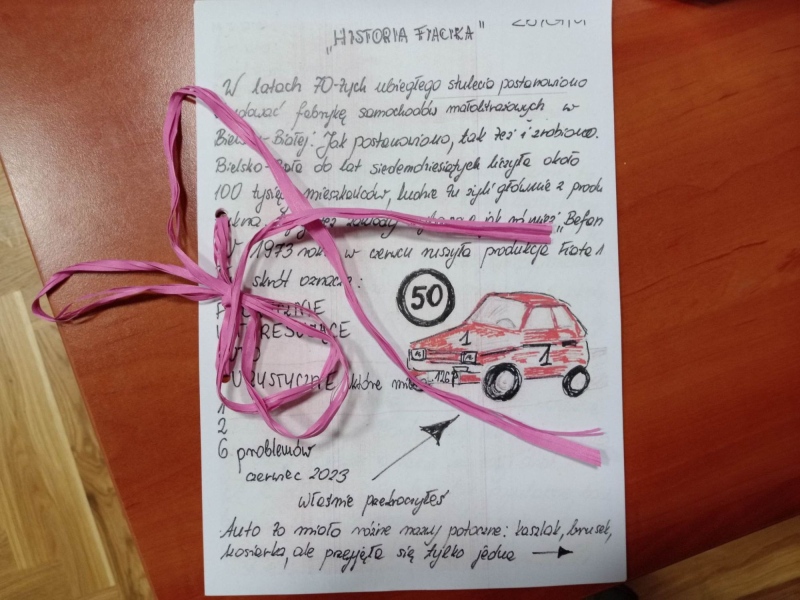 „HISTORIA FIACIKA"
W latach 70-tych ubiegłego stulecia postanowiono
fabrykę samochodów małolitrażowych w
Bielsku-Białej. Jak postanowiono, tak też i zrobiono.
Bielsko-Biała do lat siedemdziesiątych liczyła około
100 tysięcy mieszkańców, ludzie tu żyli głównie z
jak również „Befan
1973 roku w czerwcu ruszyła produkcja Fiata 1
skrót oznacza:
50
1
1
TURYSTYCZNE, które 126P
1
2
6 problemów
czerwiec 2023
właśnie przekroczyłeś
Auto to miało różne nazwy potoczne: kaszlak, brusek,
kosiarka, ale przyjęła się tylko jedna →